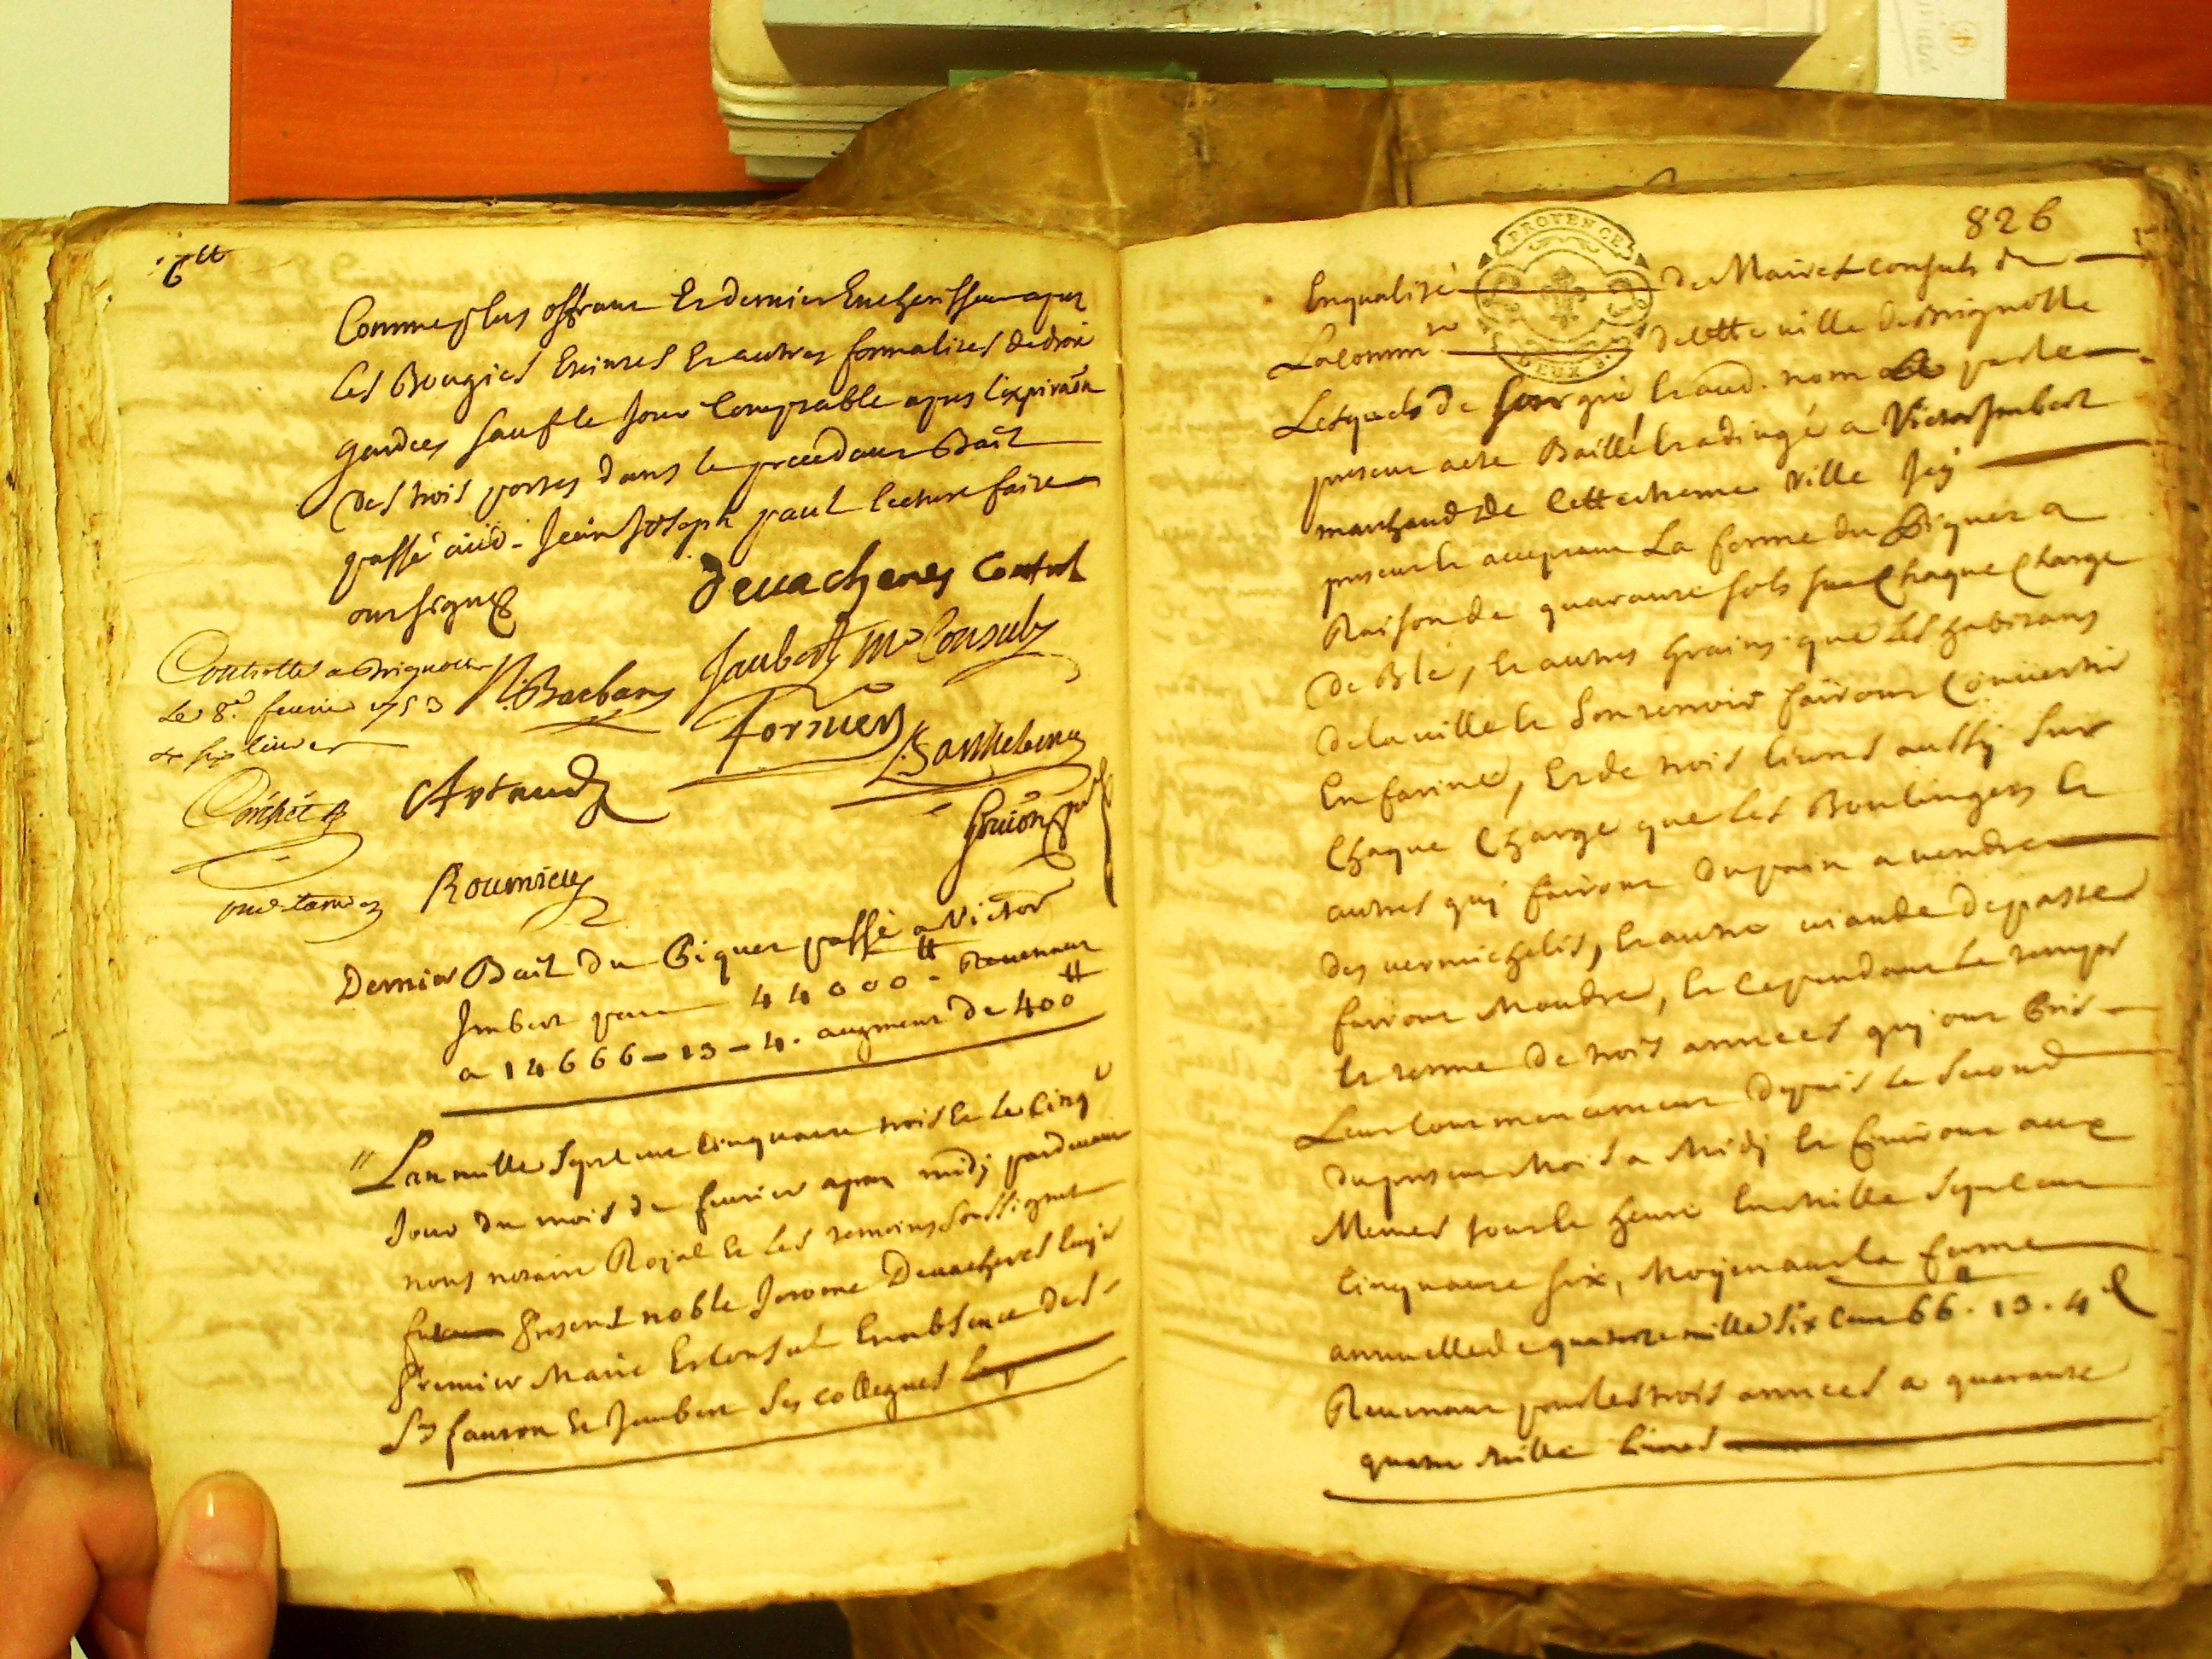 6ᵗᵗ
Comme plus offrant et dernier encherisseur apres
les Bougies Eteintes et autres formalites de droit
gardees sauf le Jour Comptable apres l'expiraōn
des trois portes dans le precedant Bail
passé aud. Jean Joseph paul lecture faite
ont signes
devachenes Consul
Controlle a Brignolle
le 8.e fevrier 1753
R. Barbars
Jaubert Mre Consuls
six livres
fornier
Barthelemy
Artaud
Guion
Roumieu
Dernier Bail du Piquet passé a Victor
Imbert pour 44000tt Revenant
a 14666 - 13 - 4. augment de 400tt
L'an mille sept cent cinquante trois et le cinq.e
Jour du mois de fevrier apres midj pardevant
nous notaire Royal et les temoins soussignes
fut present noble Jerome Devachenes Ecuyer
premier Maire et Consul En absence des
Srs fauron et Jaubert ses collegues
826
PROVENCE
DEUX S.
En qualité de Maire et consuls de
La comm.té de cette ville de Brignolle
Lesquels de leur gré et aud. nom par le
present acte Baillé et adjugé a Victor Imbert
marchand de cette meme ville Icy
present et acceptant La ferme du Piquet a
Raison de quarante sols sur chaque charge
de Blé, et autres grains que les habitans
de la ville et son terroir fairont Convertir
En farine, et de trois livres aussy sur
chaque charge que les Boulingers et
autres quj fairont du pain a vendre
des vermichelis, et autre viande de paste
fairont Moudre, et ce pendant le temps
et terme de trois années quj ont pris
Leur commencement depuis le second
du present Mois a Midj et finiront aux
Memes Jour et heure En Mille sept cent
cinquante six, Moyenant la ferme
annuelle de quatorze mille six cent 66. 13. 4d
Revenant pour les trois années a quarante
quatre Mille livres